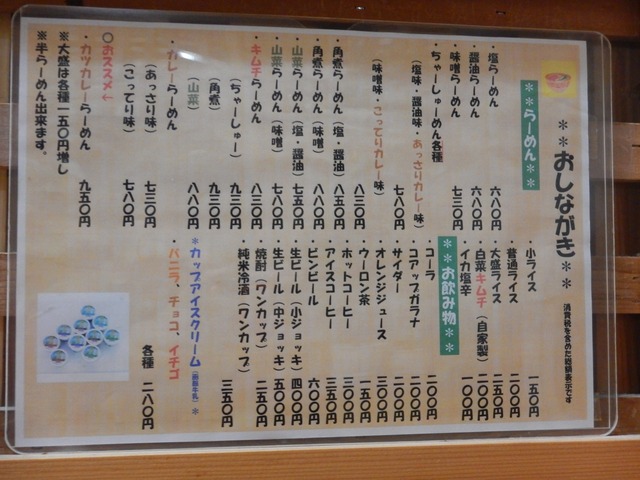 ＊＊おしながき＊＊
消費税を含めた総額表示です
＊＊らーめん＊＊
・塩らーめん 六八〇円
・醤油らーめん 六八〇円
・味噌らーめん 七三〇円
・ちゃーしゅーめん各種
（塩味・醤油味・あっさりカレー味） 七八〇円
（味噌味・こってりカレー味） 八三〇円
・角煮らーめん（塩・醤油） 八五〇円
・角煮らーめん（味噌） 八八〇円
・山菜らーめん（塩・醤油） 七五〇円
・山菜らーめん（味噌） 七八〇円
・キムチらーめん 八三〇円
（ちゃーしゅー） 九三〇円
（角煮） 九三〇円
（山菜） 八八〇円
・カレーらーめん
（あっさり味） 七三〇円
（こってり味） 七八〇円
〇おススメ←
・カツカレーらーめん 九五〇円
※大盛は各種一五〇円増し
※半らーめん出来ます。
・小ライス 一五〇円
・普通ライス 二〇〇円
・大盛ライス 二五〇円
・白菜キムチ（自家製） 二〇〇円
・イカ塩辛 一〇〇円
＊＊お飲み物＊＊
・コーラ 二〇〇円
・コアップガラナ 二〇〇円
・サイダー 二〇〇円
・オレンジジュース 三〇〇円
・ウーロン茶 一五〇円
・ホットコーヒー 三〇〇円
・アイスコーヒー 三五〇円
・ビンビール 六〇〇円
・生ビール（小ジョッキ） 四〇〇円
・生ビール（中ジョッキ） 五〇〇円
・焼酎（ワンカップ） 二五〇円
・純米冷酒（ワンカップ） 三五〇円
＊カップアイスクリーム（函館牛乳）＊
・バニラ、チョコ、イチゴ
各種 二八〇円